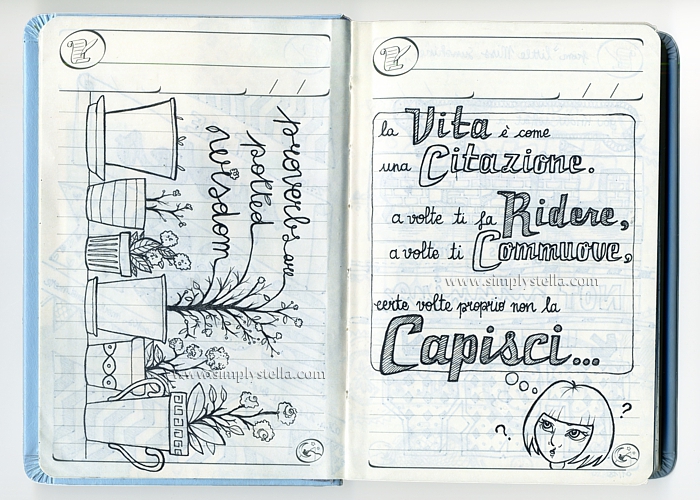 proverbs are
potted
wisdom
www.simplystella.com
la Vita è come
una Citazione.
a volte ti fa Ridere,
a volte ti Commuove,
www.simplystella.com
certe volte proprio non la
Capisci...
?
?